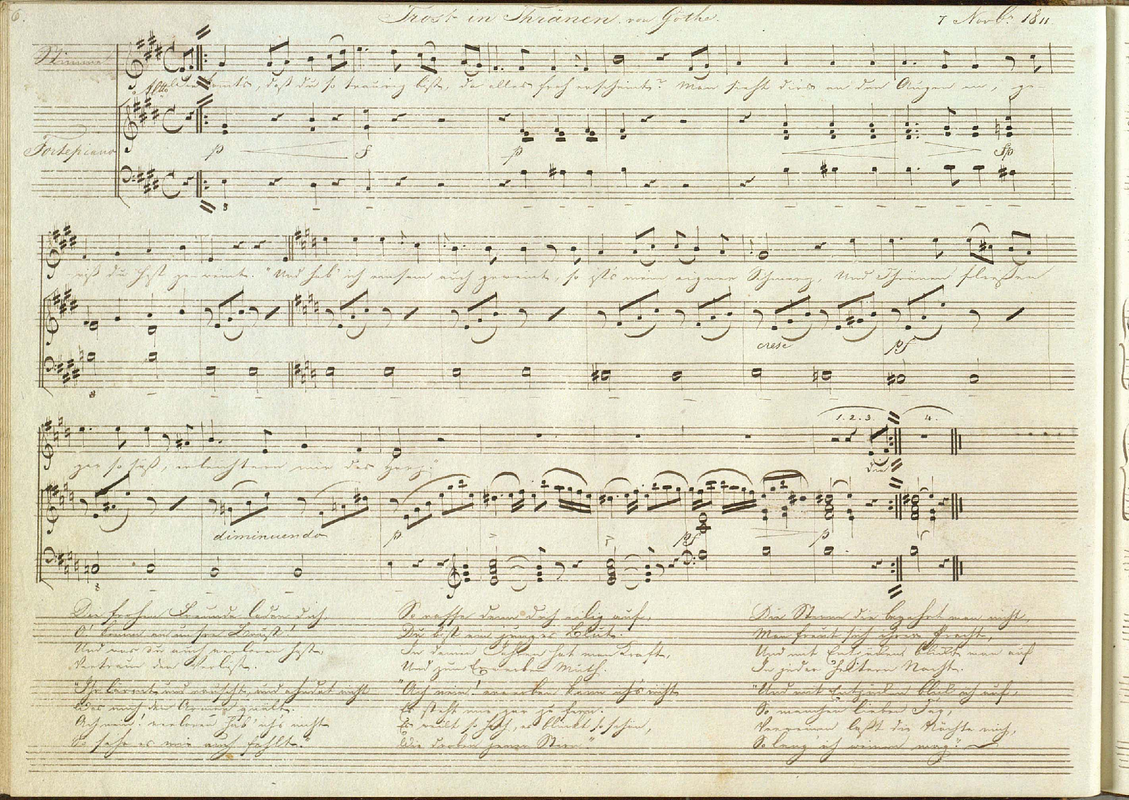 6.
Trost in Thränen von Göthe.
7 Novbr 1811.
Stimme
Wie kommt's, daß du so traurig bist, da alles froh erscheint? Man sieht dir's an den Augen an, ge-
Fortepiano
p f p fp
wiß du hast geweint. "Und hab' ich einsam auch geweint, so ist's mein eigner Schmerz, Und Thränen fließen
cresc
gar so süß, erleichtern mir das Herz."
1. 2. 3. 4.
Die
diminuendo p
Die frohen Freunde laden dich,
O! komm an unsre Brust!
Und was du auch verloren hast,
Vertraue den Verlust.
"Ihr lärmt und rauscht, und ahndet nicht
Was mich den Armen quält.
Ach nein! verloren hab' ich's nicht
So sehr es mir auch fehlt."
So raffe denn dich eilig auf,
Du bist ein junges Blut.
In deinen Jahren hat man Kraft,
Und zum Erwerben Muth.
"Ach nein! erwerben kann ich's nicht
Es steht mir gar zu fern.
Es weilt so hoch, es blinkt so schön,
Wie droben jener Stern."
Die Sterne die begehrt man nicht,
Man freut sich ihrer Pracht,
Und mit Entzücken blickt man auf
In jeder heitern Nacht.
"Und mit Entzücken blick' ich auf,
So manchen lieben Tag,
Verweinen laßt die Nächte mich,
So lang ich weinen mag."